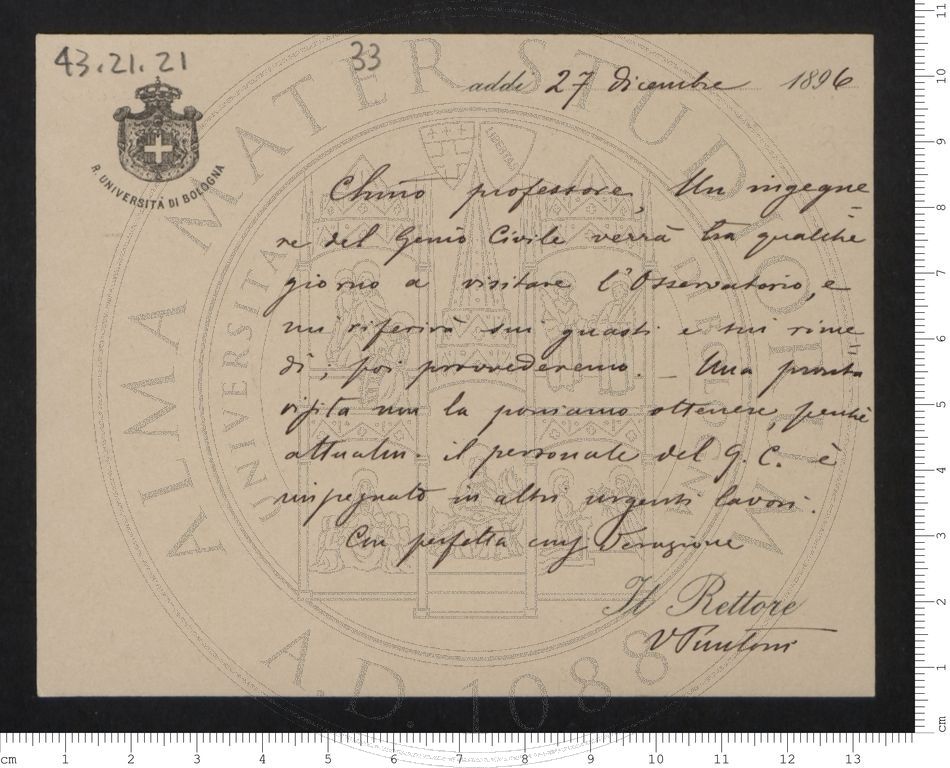 43.21.21
33
R. UNIVERSITÀ DI BOLOGNA
addì 27 dicembre 1896
Chimo professore, Un ingegne=
re del Genio Civile verrà tra qualche
giorno a visitare l'Osservatorio, e
mi riferirà sui guasti e sui rime=
di; poi provvederemo. — Una pronta
visita non la possiamo ottenere, perché
attualm. il personale del G. C. è
impegnato in altri urgenti lavori.
Con perfetta considerazione
Il Rettore
V Puntoni
ALMA MATER STUDIORUM
UNIVERSITA DI BOLOGNA
LIBERTAS
A.D. 1088
cm 1 2 3 4 5 6 7 8 9 10 11 12 13
cm 1 2 3 4 5 6 7 8 9 10 11